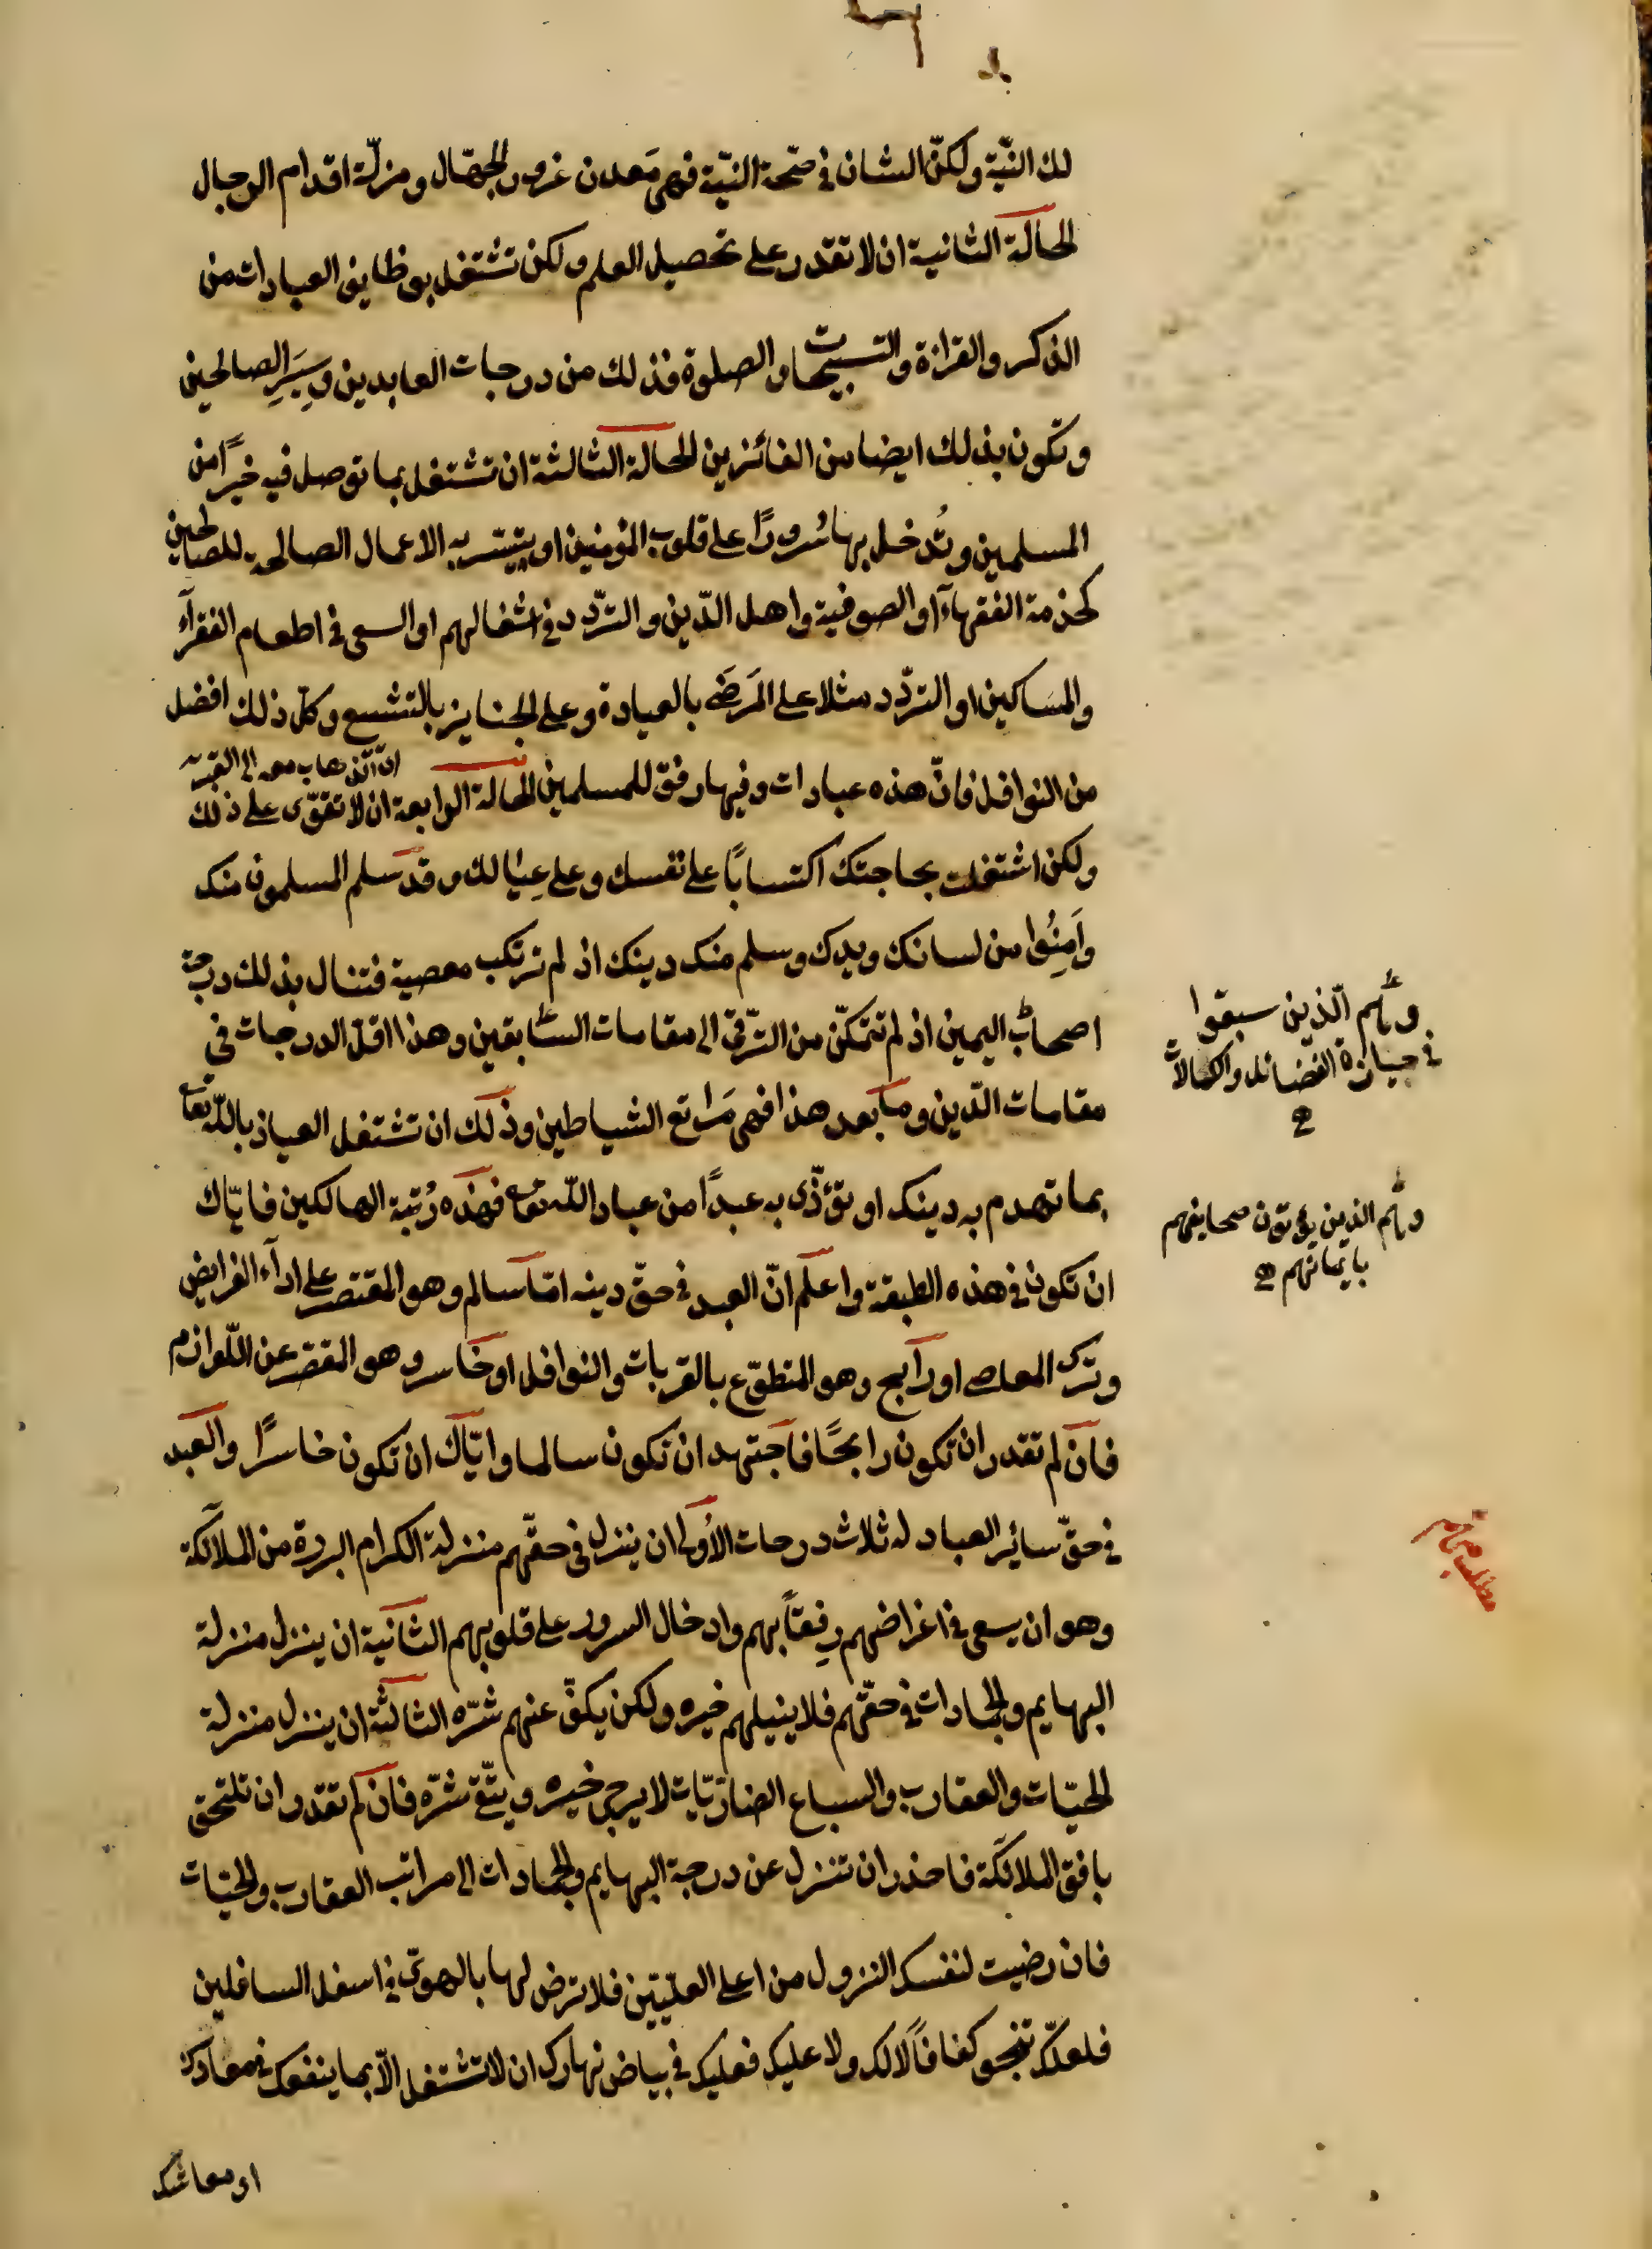 لك النيّة ولكنّ الشان في صحّة النيّة فهي مَعدن غرور الجهّال ومزلّة اقدام الرجال
الحالة الثانية ان لا تقدر على تحصيل العلم ولكن تشتغل بوظايف العبادات من
الذكر والقراءة والتسبيحات والصلوة فذلك من درجات العابدين وسِيَرِ الصالحين
وتكون بذلك ايضا من الفائزين الحالة الثالثة ان تشتغل بما توصل فيه خيرًا من
المسلمين وتُدخل بها سُرورًا على قلوب المؤمنين او يتيسّر به الاعمال الصالحة للصالحين
كخدمة الفقهاء او الصوفية واهل الدّين والتردّد في اشغالهم او السعى في اطعام الفقرآء
والمسَاكين او التردّد مثلا على المَرضَى بالعيادة وعلى الجنايز بالتشييع وكلّ ذلك افضل
من النوافل فانّ هذه عبادات وفيها رفق للمسلمين الحالة الرابعة ان لا تقوّى على ذلك
ولكن اشتغلت بحاجتك اكتسابًا على نفسك وعلى عِيَالك وقد سَلم المسلمون منك
وامِنُوا من لسانك ويدك وسلم منك دينك اذ لم ترتكب معصية فتنال بذلك درجة
اصحاب اليمين اذ لم تتمكّن من الترّقى الى مقامات السّابقين وهذا اقلّ الدرجات في
مقامات الدّين وما بعد هذا فهي مَراتع الشياطين وذلك ان تشتغل العياذ بالله تعا
بما تهدم به دينك او تؤذّى به عبدًا من عباد الله تعا فهذه رُتبة الهالكين فايّاك
ان تكون في هذه الطبقة واعلم انّ العبد في حقّ دينه امّا سالم وهو المقتصر على ادآء الفرايض
وترك المعاصى او رابح وهو المتطوّع بالقربات والنوافل او خاسر وهو المقصّر عن اللّوازم
فان لم تقدر ان تكون رابحًا فاجتهد ان تكون سالما وايّاك ان تكون خاسرًا والعبد
في حقّ سائر العباد له ثلاث درجات الأولى ان ينزل في حقّهم منزلة الكرام البررة من الملائكة
وهو ان يسعى في اغراضهم رِفقًا بهم وادخال السرور على قلوبهم الثانية ان ينزل منزلة
البهايم والجمادات في حقّهم فلا ينيلهم خيره ولكن يكفّ عنهم شرّه الثالثة ان ينزل منزلة
الحيّات والعقارب والسباع الضاريّات لا يرجى خيره ويتّقى شرّه فان لم تقدر ان تلتحق
بافق الملائكة فاحذر ان تنزل عن درجة البهايم والجمادات الى مراتب العقارب والحيّات
فان رضيت لنفسك النزول من اعلى العليّين فلا ترض لها بالهوىّ في اسفل السافلين
فلعلّك تنجو كفافًا لا لك ولا عليك فعليك في بياض نهارك ان لا تشتغل الّا بما ينفعك في معادك
او معاشك
وهم الّذين سبقوا
في حيازة الفضائل والكمالات
وهم الذين يؤتون صحايفهم
بايمانهم
مطلب